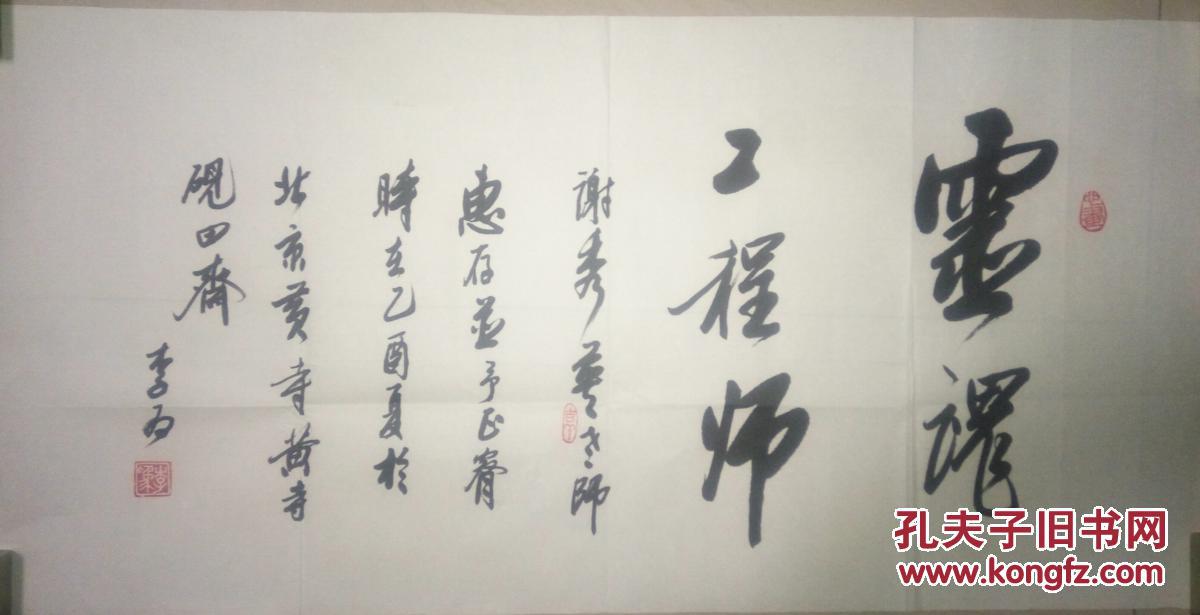 靈魂
工程师
謝秀英老師
惠存並予正
時在乙酉夏於
北京黄寺黄寺
硯田齋
李为
孔夫子旧书网
www.kongfz.com